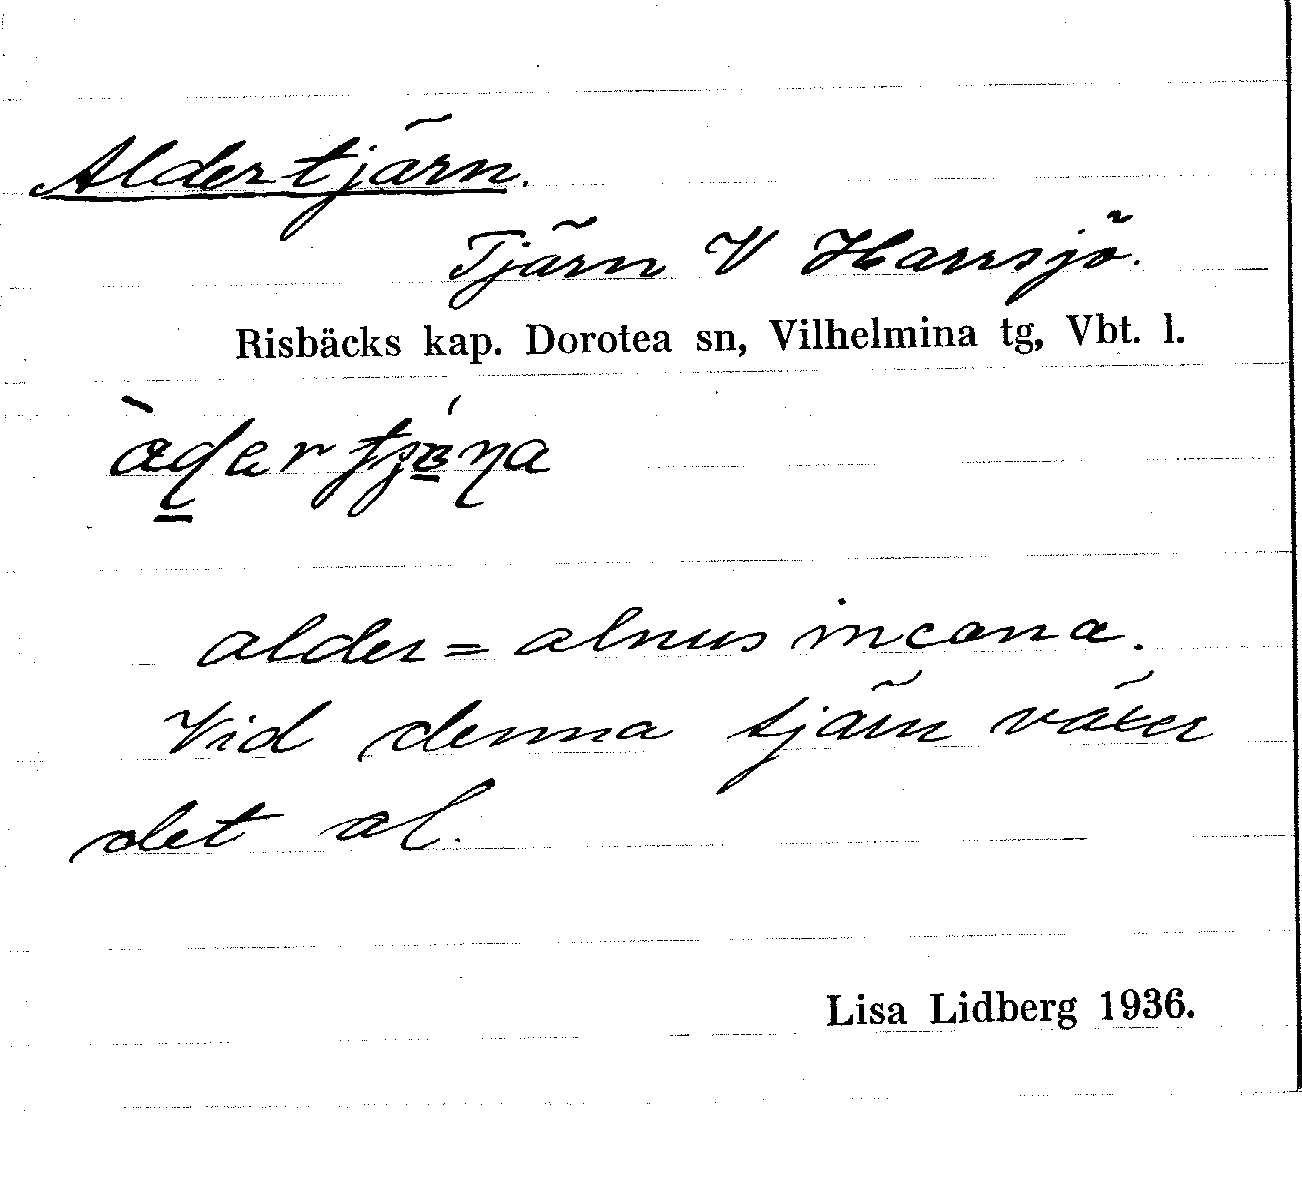 Aldertjärn.
Tjärn V Harrsjö.
Risbäcks kap. Dorotea sn, Vilhelmina tg, Vbt. l.
alder = alnus incana.
Vid denna tjärn växer
det al.
Lisa Lidberg 1936.